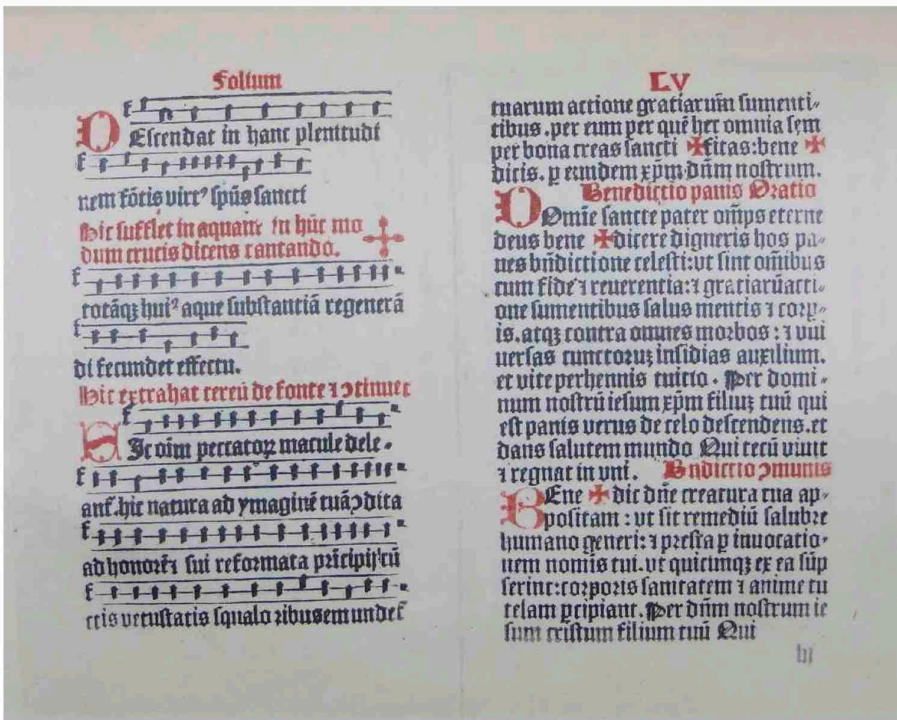 Folium
DEscendat in hanc plenitudi
nem fōtis virtꝰ spūs sancti
Hic sufflet in aquam in hūc mo
dum crucis dicens cantando.
totāqꝫ huiꝰ aque substantiā regenerā
di fecundet effectu.
Hic extrahat cereū de fonte ⁊ ↄtinuet
HIc oīm peccatoꝝ macule dele⸗
ant̄. hic natura ad ymaginē tuā ↄdita
ad honorē ⁊ sui reformata pricipij cū
ctis vetustatis squalo ribus emundet̄
LV
tuarum actione gratiarum sumenti⸗
tibus. per eum per quē hec omnia sem
per bona creas sancti ✠ficas: bene ✠
dicis. ꝑ eundem xp̄m dn̄m nostrum.
Benedictio panis Oratio
DOmīe sancte pater om̄ps eterne
deus bene ✠dicere digneris hos pa⸗
nes bn̄dictione celesti: vt sint om̄ibus
cum fide ⁊ reuerentia: ⁊ gratiarū acti⸗
one sumentibus salus mentis ⁊ corp⸗
is. atqꝫ contra omnes morbos: ⁊ vni
uersas cunctoruꝫ insidias auxilium.
et vite perhennis tuitio. Per domi⸗
num nostrū iesum xp̄m filiuꝫ tuū qui
est panis verus de celo descendens. et
dans salutem mundo Qui tecū viuit
⁊ regnat in vni. Bn̄dictio ↄmunis
BEne ✠ dic dn̄e creatura tua ap⸗
positam: vt sit remediū salubre
humano generi: ⁊ presta ꝑ inuocatio⸗
nem nomīs tui. vt quicunqꝫ ex ea sūp
serint: corporis sanitatem ⁊ anime tu
telam ꝑcipiant. Per dn̄m nostrum ie
sum cristum filium tuū Qui